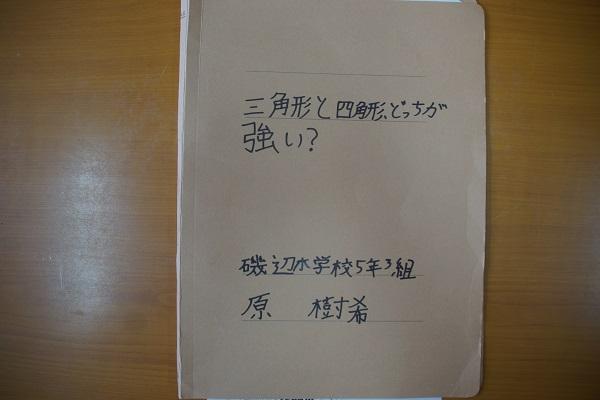 三角形と四角形、どっちが
強い？
磯辺小学校5年3組
原 樹希